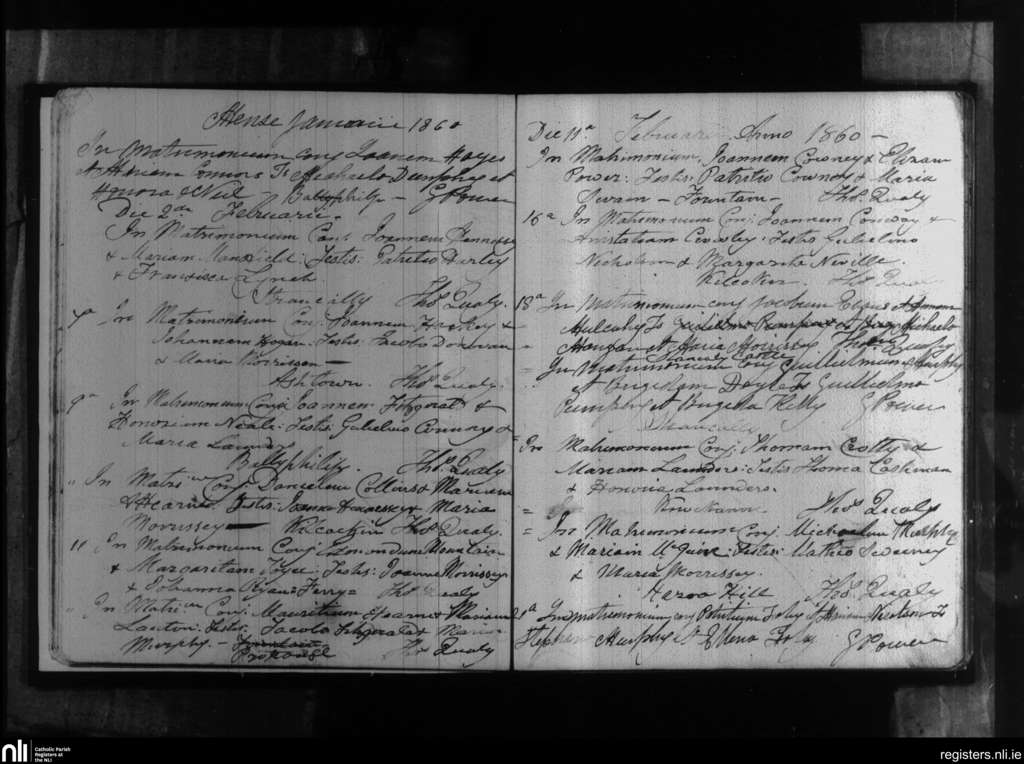 Mense Januarii 1860
In Matrimonium conj Joannem Hayes
Michaele Dumphy et
Honora Neil Ballyphilip — G Power
Die 2da Februarii.
In Matrimonium Conj. Joannem Hennessy
& Mariam Mansfield: Testis: Patritio Hurley
& Francisca Lynch
Strancally Thos. Qualy.
In Matrimonium Conj. Joannem &
Johannam Hogan. Testis: Jacobo Donovan
& Maria Morrison —
Ashtown. Thos. Qualy.
9a In Matrimonium Conj. Joannem Fitzgerald &
Honoriam Neale: Testis: Gulielmo &
Maria
Ballyphilip. Thos. Qualy
" In Matri Conj. Danielem Collins & Mariam
AHearne. Testis: Joanne Hennessey & Maria
Morrissey — Thos. Qualy.
11 In Matrimonium Conj Edmondum Fountain
& Margaritam Joyce: Testis: Joanne Morrissey
& Johanna Ryan = Ferry = Thos Qualy
" In Matri Conj. Mauritium Ahearn & Mariam
Lawton: Testis. Jacobo Fitzgerald & Maria
Murphy. — Thos Qualy
Die 11a Februarii Anno 1860 —
In Matrimonium, Joannem Cowney & Elizam
Power: Testis: Patritio Cowney & Maria
Swain — Fountain — Thos. Qualy
16a In Matrimonium Conj. Joannem Conway &
Anistatiam Crowley: Testis Gulielmo
Nicholson & Margarita Neville.
Thos Qualy
18a In Matrimonium conj Jacobum
Mulcahy Ts Michaele
et Maria Morrissey
Strancally Castle
= In Matrimonium conj Guillielmum Murphy
et Brigidam Doyle Ts Guillielmo
Dumphy et Brigida Kelly G Power
Strancally
= In Matrimonium Conj. Thomam Crotty &
Mariam Launders: Testis Thoma Coshman
& Honoria Launders.
= Thos Qualy
= In Matrimonium Conj. Michaelum Murphy
& Mariam McGuire: Testis: Mathio Sweeney
& Maria Morrissey.
Hill Thos. Qualy
21a In matrimonium conj Patritium Foley et Ts
Stephano Murphy et Ellena Foley G Power
nli Catholic Parish
Registers at
the NLI
registers.nli.ie